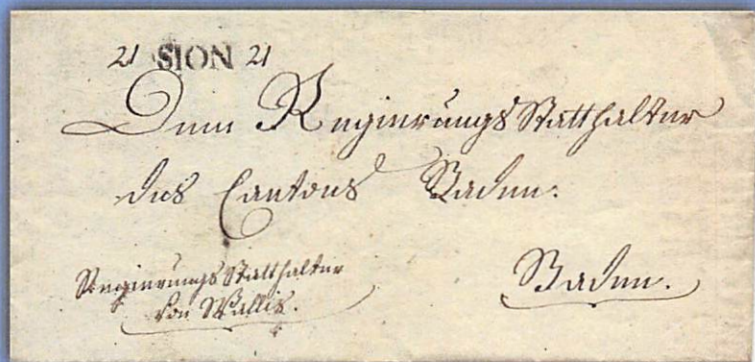 21 SION 21
Dem Regierungs Statthalter
des Cantons Baden.
Regierungs Statthalter
von Wallis.
Baden.